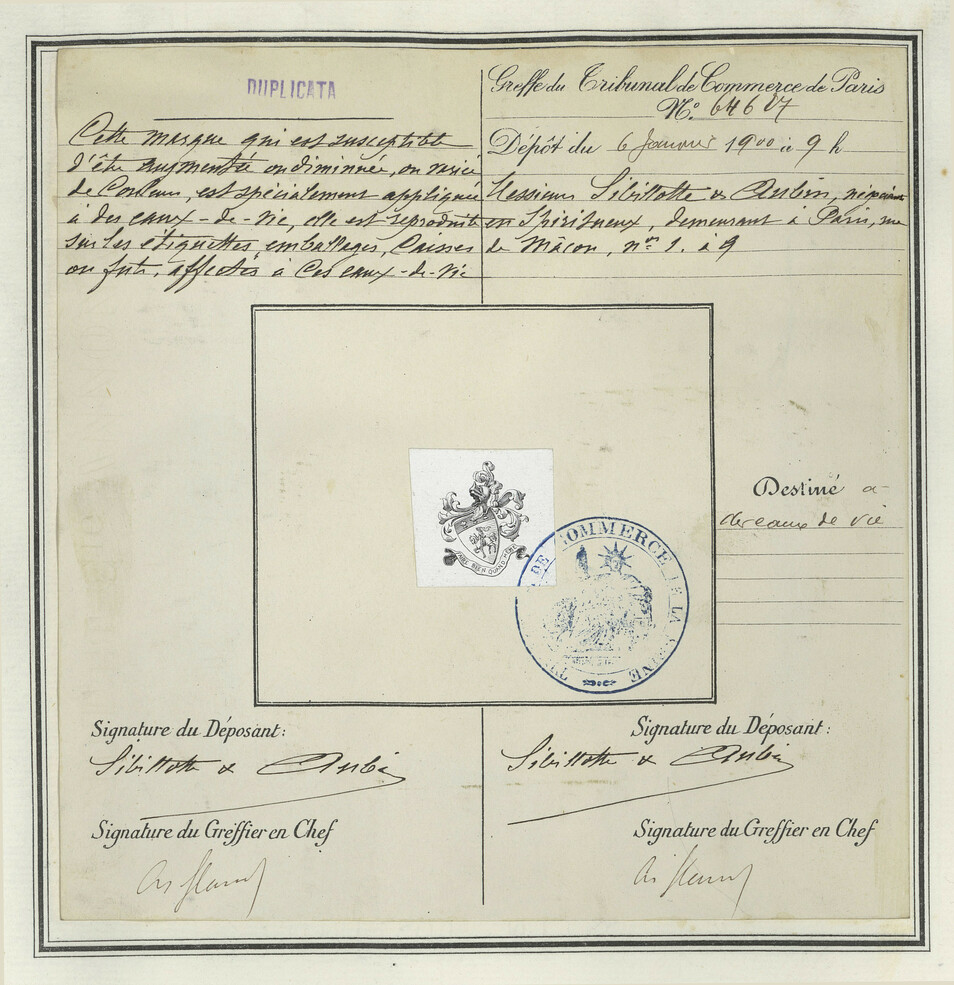 DUPLICATA
Cette marque qui est susceptible
d'être augmentée ou diminuée, ou variée
de couleur, est spécialement appliquée
à des eaux-de-vie, elle est reproduite
sur les étiquettes emballages, caisses
ou fûts, affectés à ces eaux-de-vie
Greffe du Tribunal de Commerce de Paris
N°. 64617
Dépôt du 6 Janvier 1900 à 9 h
Messieurs Sibillotte & Aubin, négociants
en Spiritueux, demeurant à Paris, rue
de Mâcon, nos 1. à 9
BIEN QUAND MÊME
DE COMMERCE DE LA SEINE
Destiné à
des eaux de vie
Signature du Déposant:
Sibillotte & Aubin
Signature du Greffier en Chef
Signature du Déposant:
Sibillotte & Aubin
Signature du Greffier en Chef